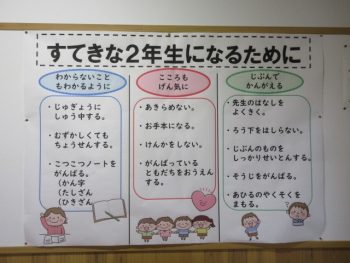 すてきな2年生になるために
わからないこと
もわかるように
・じゅぎょうに
しゅう中する。
・むずかしくても
ちょうせんする。
・こつこつノートを
がんばる。
(かん字
(たしざん
(ひきざん
こころも
げん気に
・あきらめない。
・お手本になる。
・けんかをしない。
・がんばっている
ともだちをおうえん
する。
じぶんで
かんがえる
・先生のはなしを
よくきく。
・ろう下をはしらない。
・じぶんのものを
しっかりせいとんする。
・そうじをがんばる。
・あひるのやくそくを
まもる。